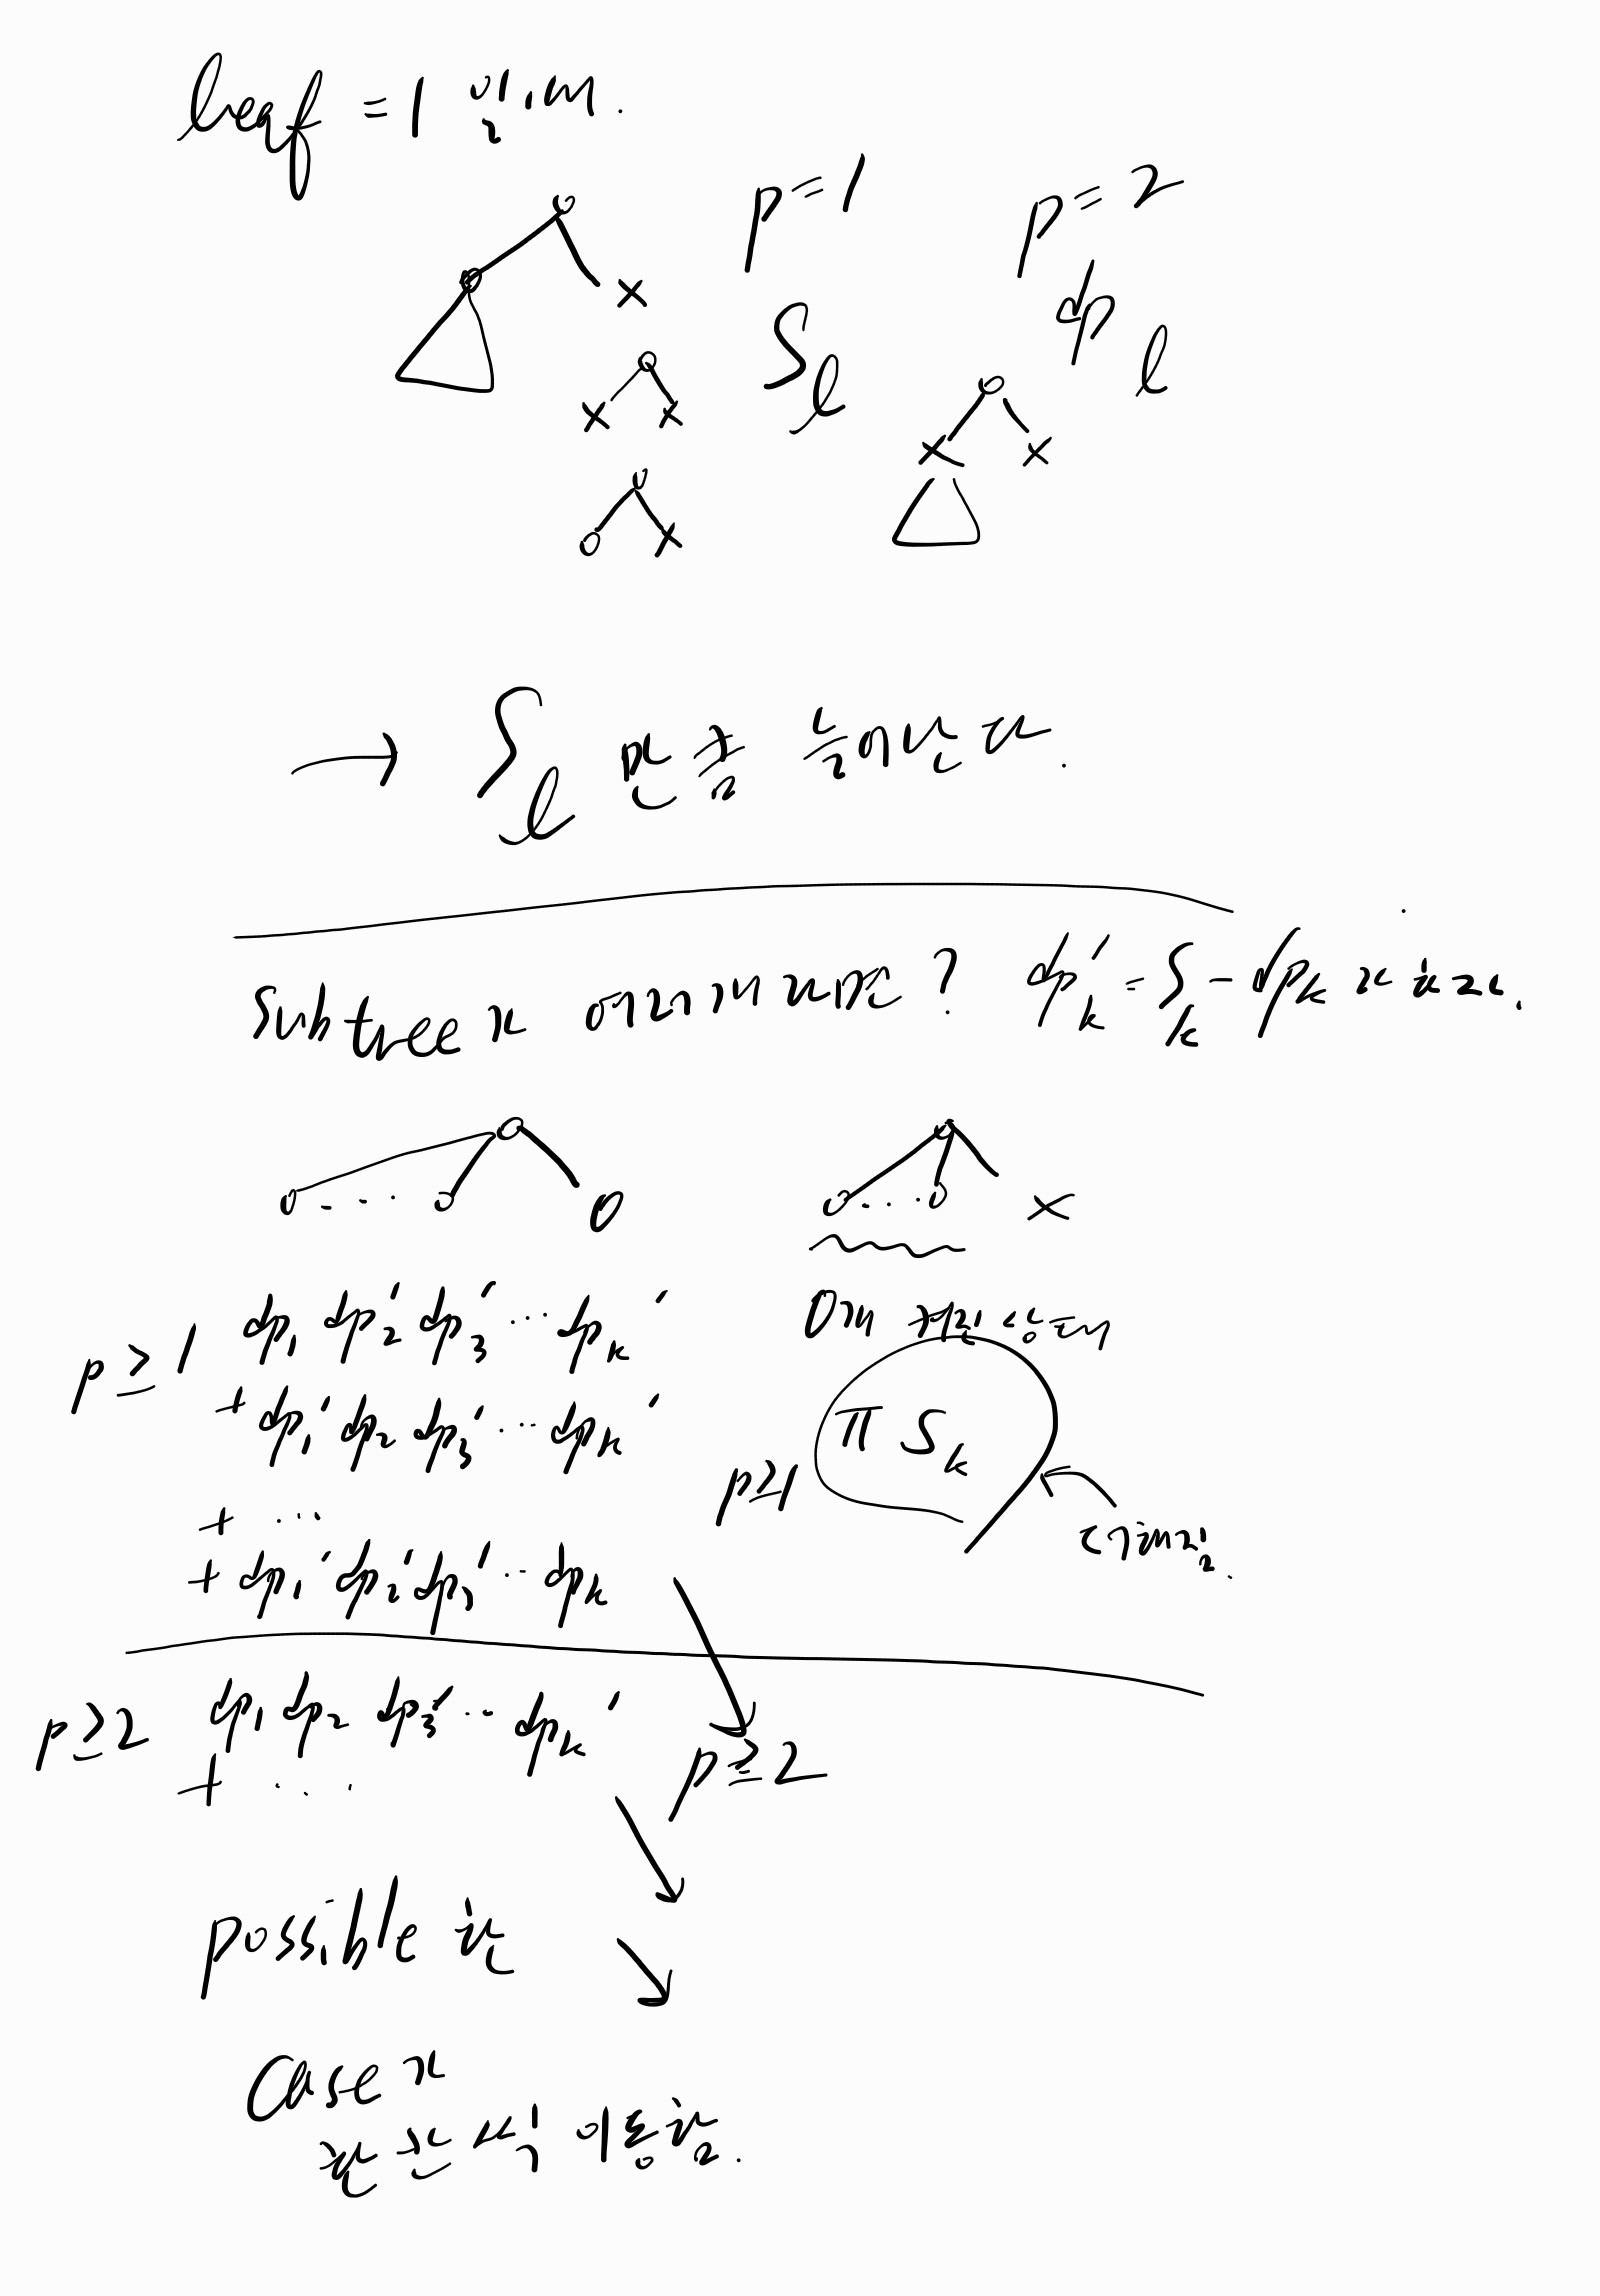 leaf = 1 일 때.
p = 1
p = 2
S_l
dp_l
→ S_l 만큼 늘어난다.
Subtree가 여러개 라면? dp'_k = S_k - dp_k 라 하자.
p ≥ 1 dp_1 dp_2' dp_3' ... dp_k'
+ dp_1' dp_2 dp_3' ... dp_k'
+ ...
+ dp_1' dp_2' dp_3' ... dp_k
p ≥ 1 π S_k
p ≥ 2 dp_1 dp_2 dp_3' ... dp_k'
+ ...
p ≥ 2
possible 한
Case가
한칸씩 이동함.